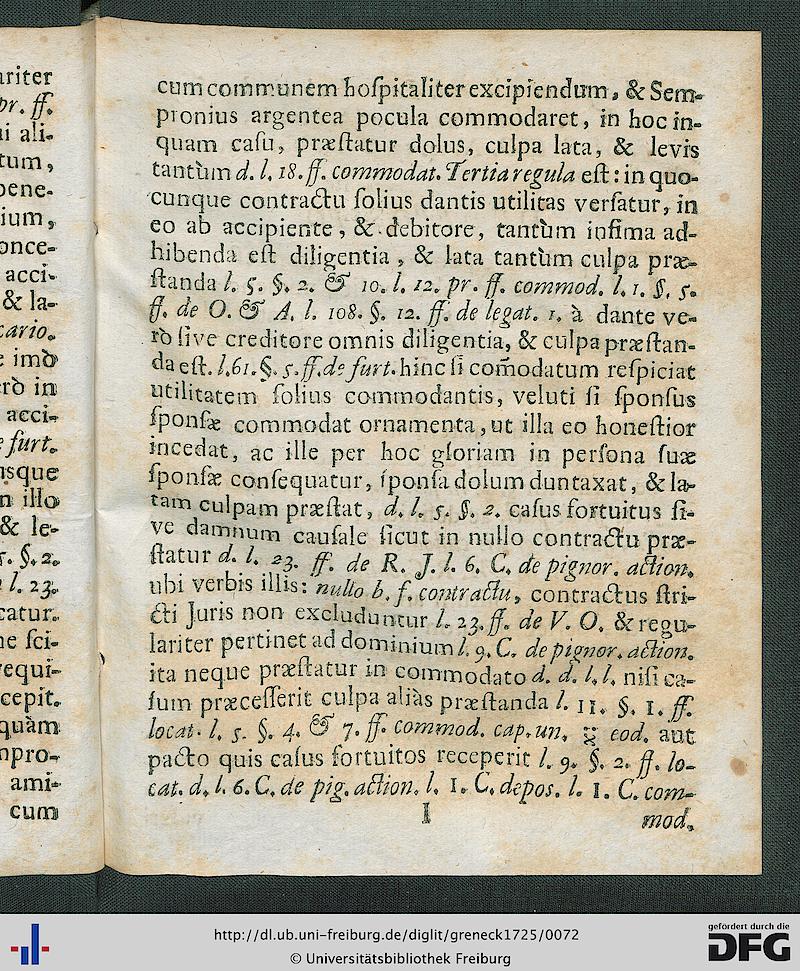 ariter
pr. ff.
ui ali-
tum,
bene-
ium,
once-
acci-
& la-
cario.
e imò
erò in
acci-
e furt.
usque
n illo
& le-
5. §. 2.
l. 23.
catur.
ne ſci-
æqui-
cepit.
quàm
npro-
ami-
cum
cum communem hoſpitaliter excipiendum, & Sem-
pronius argentea pocula commodaret, in hoc in-
quam caſu, præſtatur dolus, culpa lata, & levis
tantùm d. l. 18. ff. commodat. Tertia regula eſt: in quo-
cunque contractu ſolius dantis utilitas verſatur, in
eo ab accipiente, & debitore, tantùm infima ad-
hibenda eſt diligentia, & lata tantùm culpa præ-
ſtanda l. 5. §. 2. & 10. l. 12. pr. ff. commod. l. 1. §. 5.
ff. de O. & A. l. 108. §. 12. ff. de legat. 1. à dante ve-
rò ſive creditore omnis diligentia, & culpa præſtan-
da eſt. l. 61. §. 5. ff. de furt. hinc ſi com̃odatum reſpiciat
utilitatem ſolius commodantis, veluti ſi ſponſus
ſponſæ commodat ornamenta, ut illa eo honeſtior
incedat, ac ille per hoc gloriam in perſona ſuæ
ſponſæ conſequatur, ſponſa dolum duntaxat, & la-
tam culpam præſtat, d. l. 5. §. 2. caſus fortuitus ſi-
ve damnum cauſale ſicut in nullo contractu præ-
ſtatur d. l. 23. ff. de R. J. l. 6. C. de pignor. action.
ubi verbis illis: nullo b. f. contractu, contractus ſtri-
cti Juris non excluduntur l. 23. ff. de V. O. & regu-
lariter pertinet ad dominium l. 9. C. de pignor. action.
ita neque præſtatur in commodato d. d. l. l. niſi ca-
ſum præceſſerit culpa aliàs præſtanda l. 11. §. 1. ff.
locat. l. 5. §. 4. & 7. ff. commod. cap. un. eod. aut
pacto quis caſus fortuitos receperit l. 9. §. 2. ff. lo-
cat. d. l. 6. C. de pig. action. l. 1. C. depos. l. 1. C. com-
I mod.
http://dl.ub.uni-freiburg.de/diglit/greneck1725/0072
© Universitätsbibliothek Freiburg
gefördert durch die
DFG